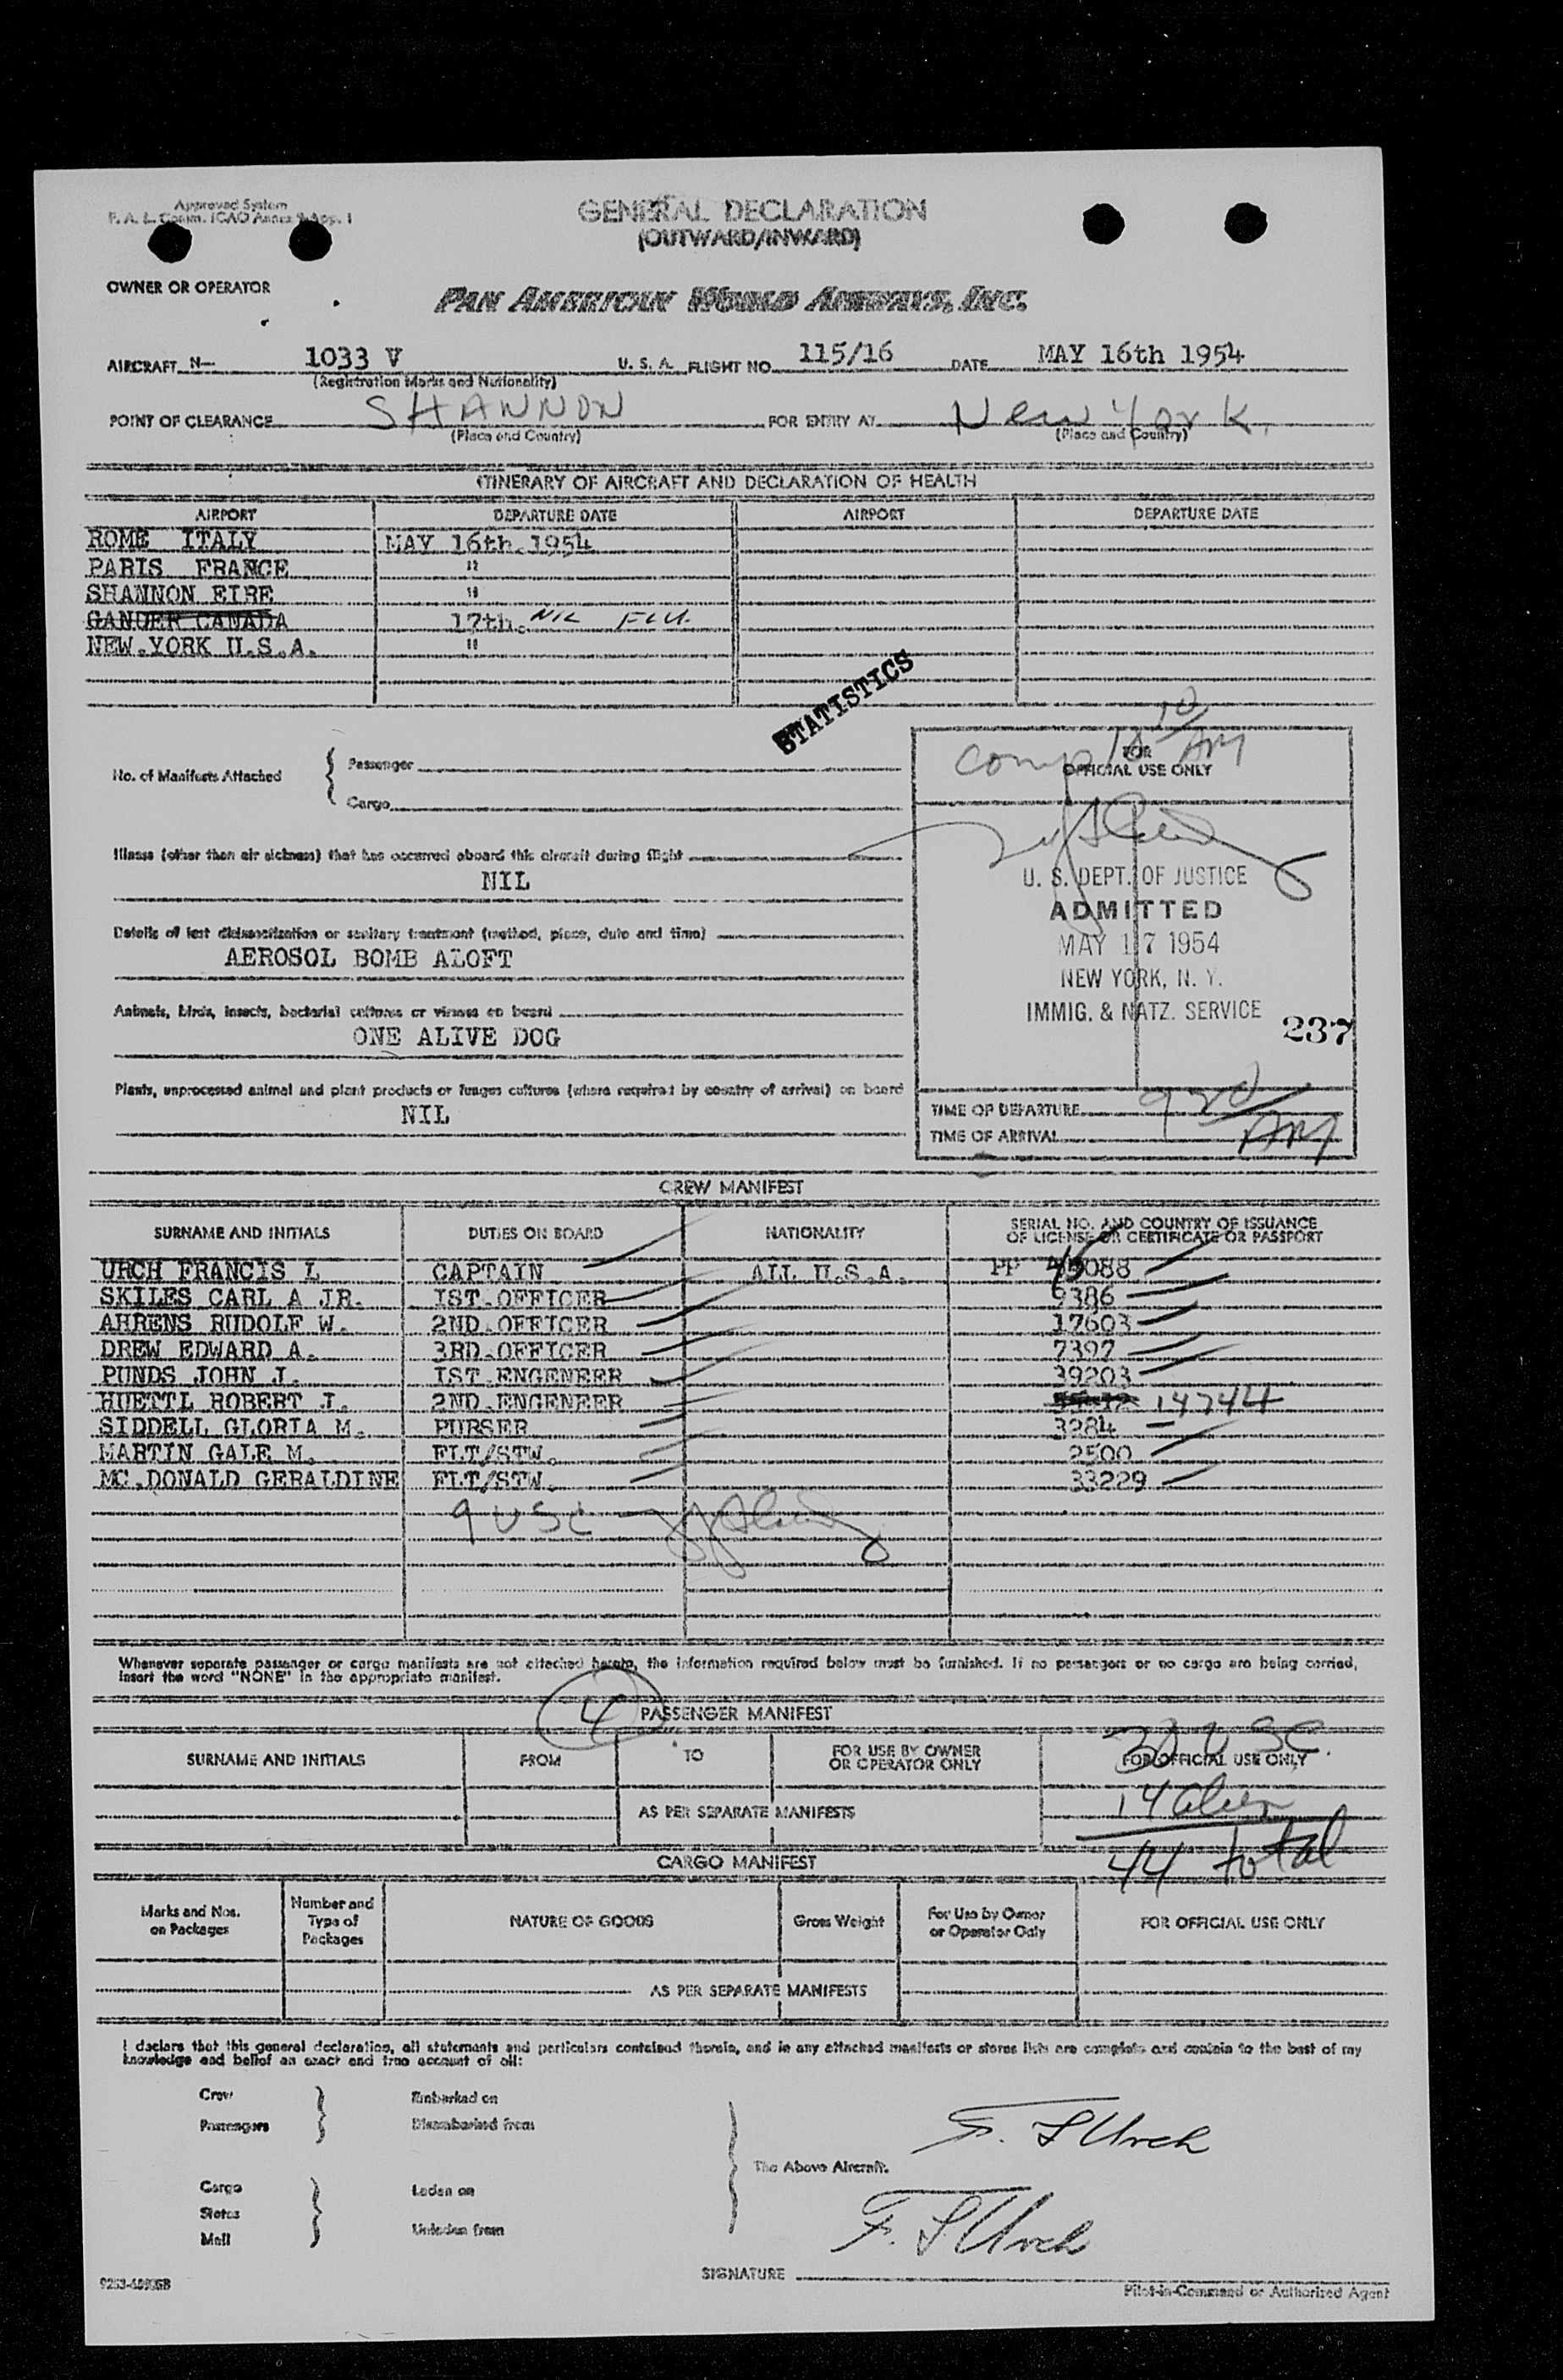 Approved System
F. A. L. Comm. ICAO Annex 9 App. 1
GENERAL DECLARATION
(OUTWARD/INWARD)
OWNER OR OPERATOR
PAN AMERICAN WORLD AIRWAYS, INC.
AIRCRAFT N— 1033 V U. S. A. FLIGHT NO. 115/16 DATE MAY 16th 1954
(Registration Marks and Nationality)
POINT OF CLEARANCE SHANNON FOR ENTRY AT New York.
(Place and Country) (Place and Country)
ITINERARY OF AIRCRAFT AND DECLARATION OF HEALTH
AIRPORT DEPARTURE DATE AIRPORT DEPARTURE DATE
ROME ITALY MAY 16th.1954
PARIS FRANCE "
SHANNON EIRE "
GANDER CANADA 17th. NIL
NEW.YORK U.S.A. "
STATISTICS
No. of Manifests Attached { Passenger
Cargo
Comp 10 10/AM
FOR
OFFICIAL USE ONLY
Illness (other than air sickness) that has occurred aboard this aircraft during flight
NIL
Details of last disinsectization or sanitary treatment (method, place, date and time)
AEROSOL BOMB ALOFT
Animals, birds, insects, bacterial cultures or viruses on board
ONE ALIVE DOG
Plants, unprocessed animal and plant products or fungus cultures (where required by country of arrival) on board
NIL
U. S. DEPT. OF JUSTICE
ADMITTED
MAY 17 1954
NEW YORK, N. Y.
IMMIG. & NATZ. SERVICE 237
TIME OF DEPARTURE
TIME OF ARRIVAL 920/AM
CREW MANIFEST
SURNAME AND INITIALS DUTIES ON BOARD NATIONALITY SERIAL NO. AND COUNTRY OF ISSUANCE
OF LICENSE OR CERTIFICATE OR PASSPORT
URCH FRANCIS L CAPTAIN ALL U.S.A. PP 45088
SKILES CARL A JR. IST.OFFICER 9386
AHRENS RUDOLF W. 2ND.OFFICER 17603
DREW EDWARD A. 3RD.OFFICER 7397
PUNDS JOHN J. IST.ENGENEER 39203
HUETTL ROBERT J. 2ND.ENGENEER 14744
SIDDELL GLORIA M. PURSER 3284
MARTIN GALE M. FLT/STW. 2500
MC.DONALD GERALDINE FLT/STW. 33229
9 USC
Whenever separate passenger or cargo manifests are not attached hereto, the information required below must be furnished. If no passengers or no cargo are being carried,
insert the word "NONE" in the appropriate manifest.
4 PASSENGER MANIFEST
SURNAME AND INITIALS FROM TO FOR USE BY OWNER
OR OPERATOR ONLY FOR OFFICIAL USE ONLY
30 USC.
14 alien
AS PER SEPARATE MANIFESTS
44 total
CARGO MANIFEST
Marks and Nos.
on Packages Number and
Type of
Packages NATURE OF GOODS Gross Weight For Use by Owner
or Operator Only FOR OFFICIAL USE ONLY
AS PER SEPARATE MANIFESTS
I declare that this general declaration, all statements and particulars contained therein, and in any attached manifests or stores lists are complete and contain to the best of my
knowledge and belief an exact and true account of all:
Crew Embarked on
Passengers Disembarked from
F. L Urch
The Above Aircraft.
Cargo Laden on
Stores
Mail Unladen from
F. L Urch
SIGNATURE
Pilot-in-Command or Authorized Agent